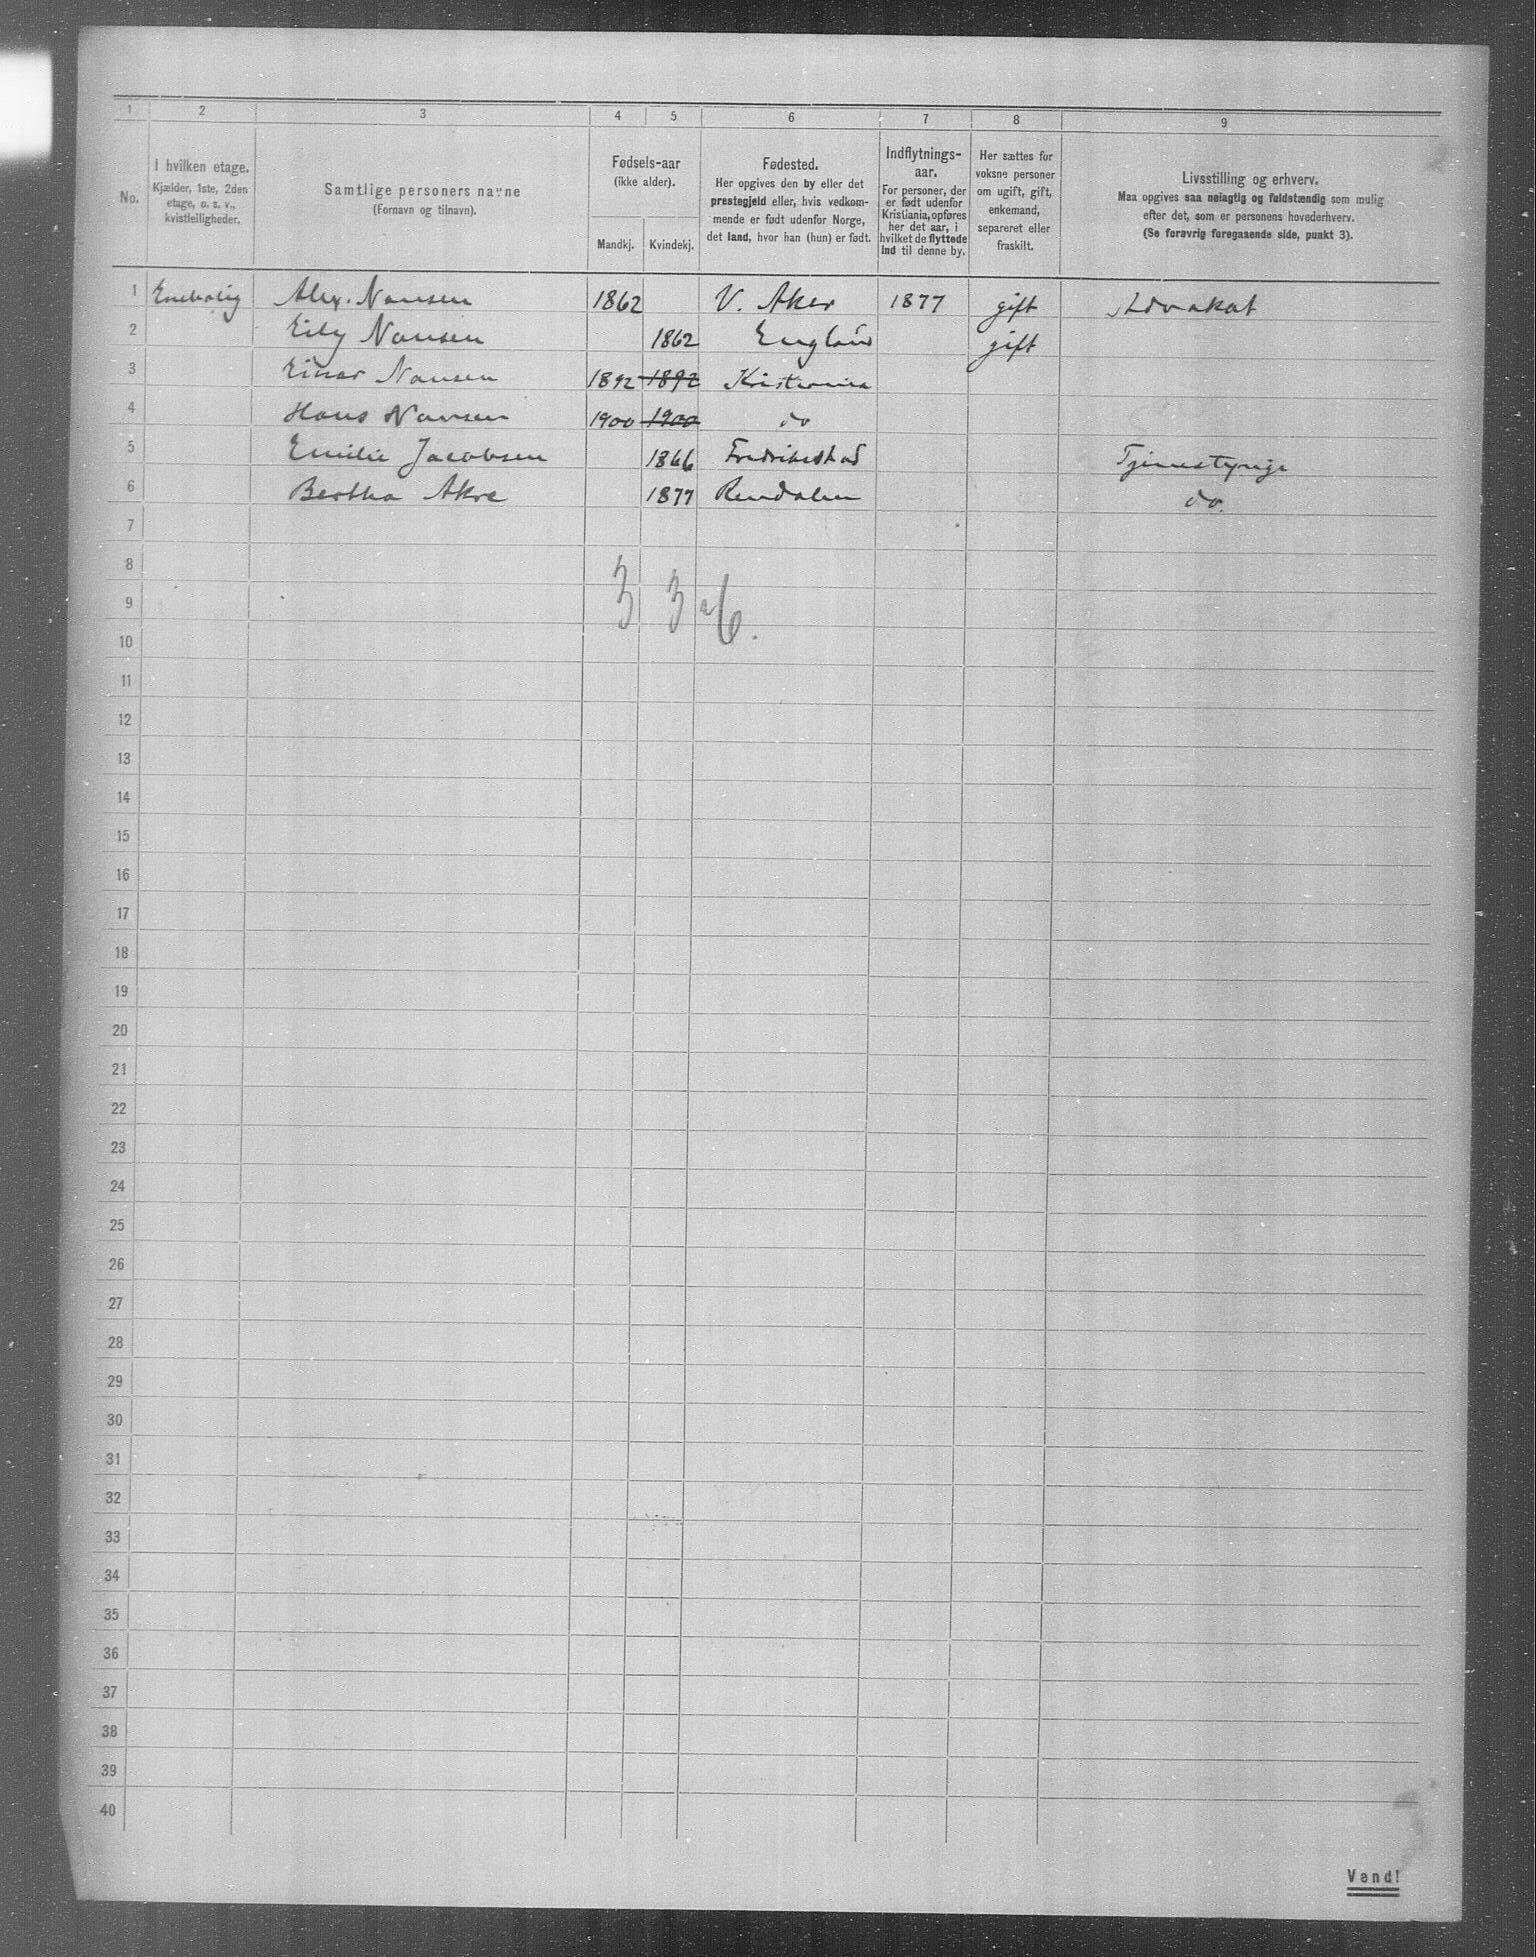 1 2 3 4 5 6 7 8 9
No.
I hvilken etage.
Kjælder, 1ste, 2den
etage, o. s. v.,
kvistleiligheder.
Samtlige personers navne
(Fornavn og tilnavn).
Fødsels-aar
(ikke alder).
Mandkj. Kvindekj.
Fødested.
Her opgives den by eller det
prestegjeld eller, hvis vedkom-
mende er født udenfor Norge,
det land, hvor han (hun) er født.
Indflytnings-
aar.
For personer, der
er født udenfor
Kristiania, opføres
her det aar, i
hvilket de flyttede
ind til denne by.
Her sættes for
voksne personer
om ugift, gift,
enkemand,
separeret eller
fraskilt.
Livsstilling og erhverv.
Maa opgives saa nøiagtig og fuldstændig som mulig
efter det, som er personens hovederhverv.
(Se forøvrig foregaaende side, punkt 3).
1 Enebolig Alex. Nansen 1862 V. Aker 1877 gift Advokat
2 Eily Nansen 1862 England gift
3 Einar Nansen 1892 1892 Kristiania
4 Hans Nansen 1900 1900 do
5 Emilie Jacobsen 1866 Fredrikstad Tjenestepige
6 Bertha Akre 1877 Rendalen do.
7
8
3 3 6.
9
10
11
12
13
14
15
16
17
18
19
20
21
22
23
24
25
26
27
28
29
30
31
32
33
34
35
36
37
38
39
40
Vend!